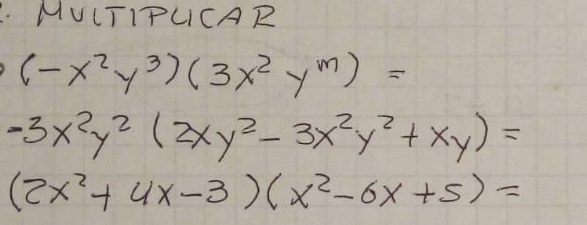 . MULTIPLICAR
(-x²y³)(3x² yᵐ) =
-3x²y² (2xy² - 3x²y² + xy) =
(2x² + 4x - 3)(x² - 6x + 5) =